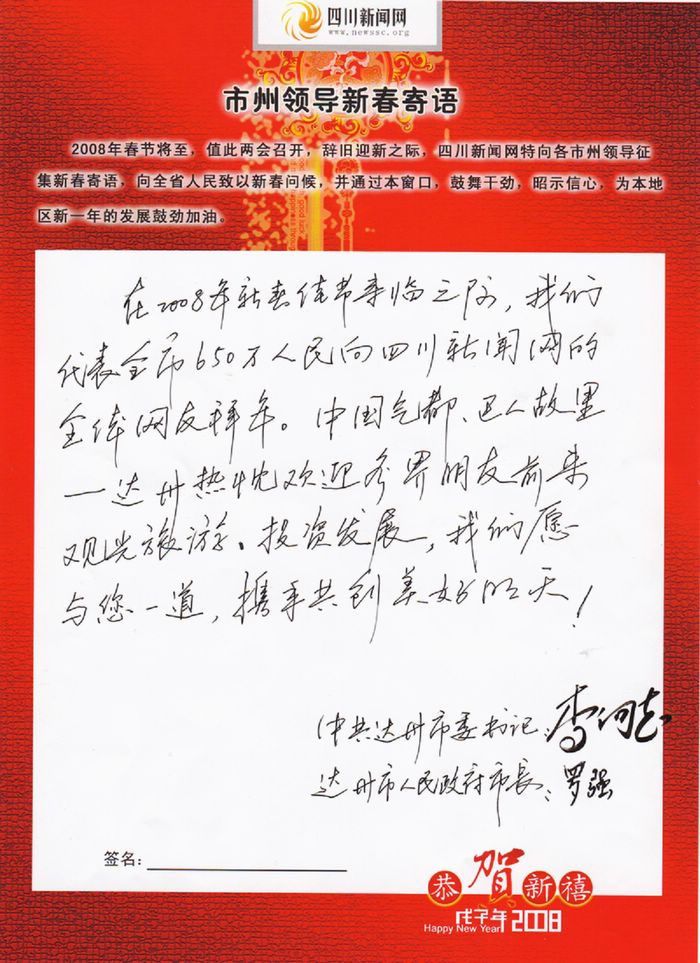 四川新闻网
www.newssc.org
市州领导新春寄语
2008年春节将至，值此两会召开，辞旧迎新之际，四川新闻网特向各市州领导征
集新春寄语，向全省人民致以新春问候，并通过本窗口，鼓舞干劲，昭示信心，为本地
区新一年的发展鼓劲加油。
在2008年新春佳节来临之际，我们
代表全市650万人民向四川新闻网的
全体网友拜年。中国气都、巴人故里
—达州热忱欢迎各界朋友前来
观光旅游、投资发展，我们愿
与您一道，携手共创美好明天！
中共达州市委书记：李向志
达州市人民政府市长：罗强
签名：
恭贺新禧
戊子年 2008
Happy New Year